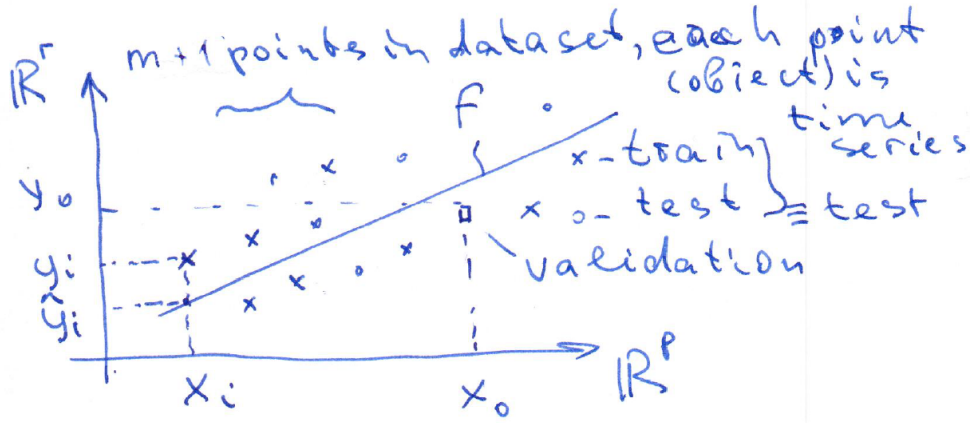 ℝʳ m+1 points in dataset, each point
(object) is
time
series
f
x - train
o - test ≡ test
validation
y₀
yᵢ
ŷᵢ
xᵢ x₀ ℝᵖ